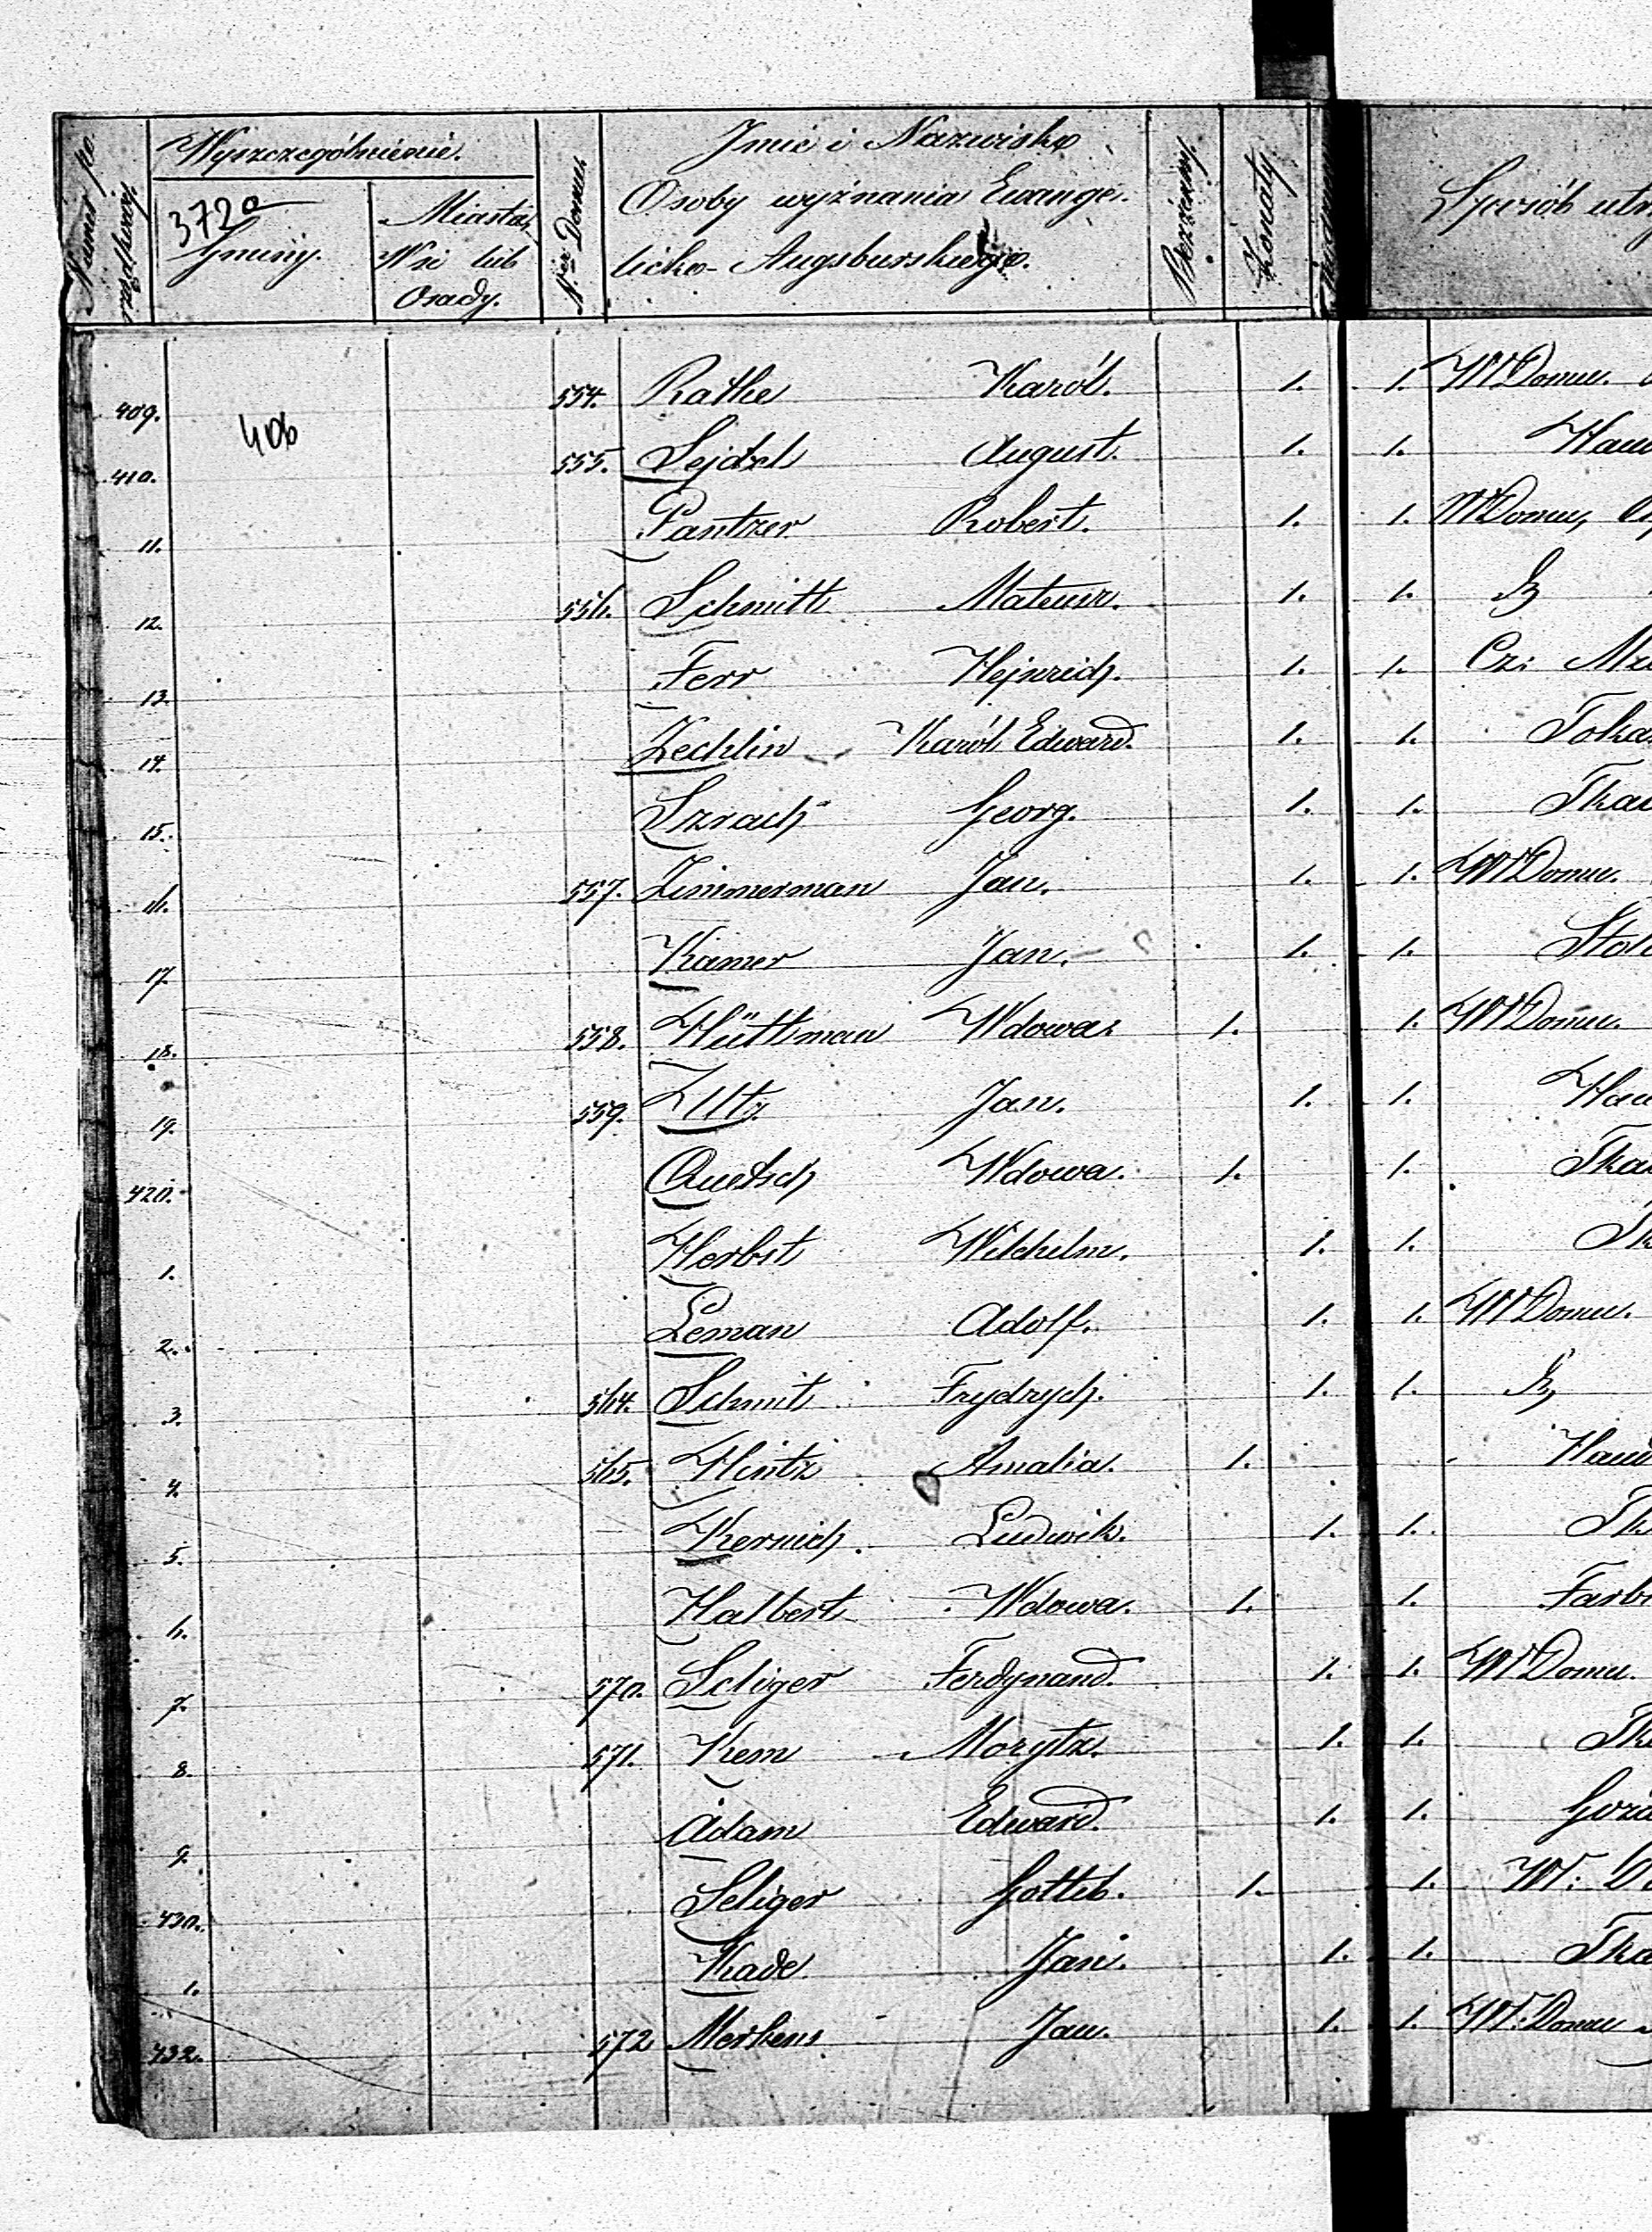 Numer po rządkowy.
Wyszczególnienie.
372a
Gminy.
Miasta, Wsi lub Osady.
Ner Domu
Imie i Nazwisko
Osoby wyznania Ewange-
licko-Augsburskiego.
Bezżenny.
Żonaty.
Sposób utrz
406
409. 554. Rathe Karól. 1. 1. W Domu.
410. 555. Sejdel August. 1. 1. Han
11. Pantzer Robert. 1. 1. W Domu,
12. 556. Schmitt Mateusz. 1. 1.
13. Ferr Hejnrich. 1. 1. Cz:
14. Zechlin Karól Edward. 1. 1. Toka
15. Szrach Georg. 1. 1. Tka
16. 557. Zimmerman Jan. 1. 1. W Domu.
17. Kramer Jan. 1. 1. Stol
18. 558. Hüttman Wdowa. 1. 1. W Domu.
19. 559. Ultz Jan. 1. 1. Ha
420. Quetsch Wdowa. 1. 1. Tka
1. Herbst Wilchelm. 1. 1. Tk
2. Leman Adolf. 1. 1. W Domu.
3. 564. Schmit Frydrych. 1. 1.
4. 565. Hintz Amalia. 1. Hand
5. Kernich. Ludwik. 1. 1. Tk
6. Halbert Wdowa. 1. 1. Farb
7. 570. Seliger Ferdynand. 1. 1. W Domu.
8. 571. Kem Morytz. 1. 1. Tk
9. Adam Edward. 1. 1. Gorz
430. Seliger Gottlib. 1. 1. W:
1. Kade Jan. 1. 1. Tka
432. 572 Merkens Jan. 1. 1. W: Domu